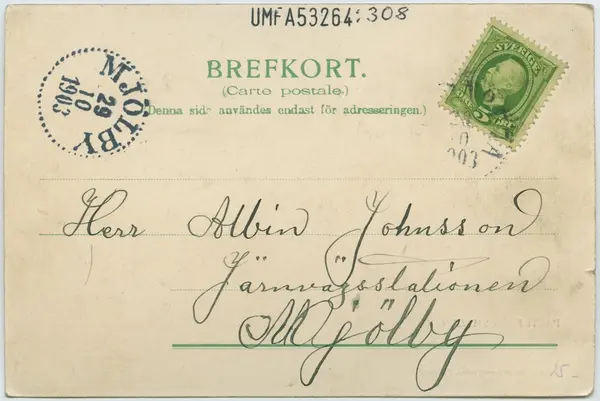 UMFA53264:308
BREFKORT.
(Carte postale.)
(Denna sida användes endast för adresseringen.)
MJÖLBY
29
10
1903
SVERIGE
5 ÖRE
Herr Albin Johnsson
Järnvägsstationen
Mjölby